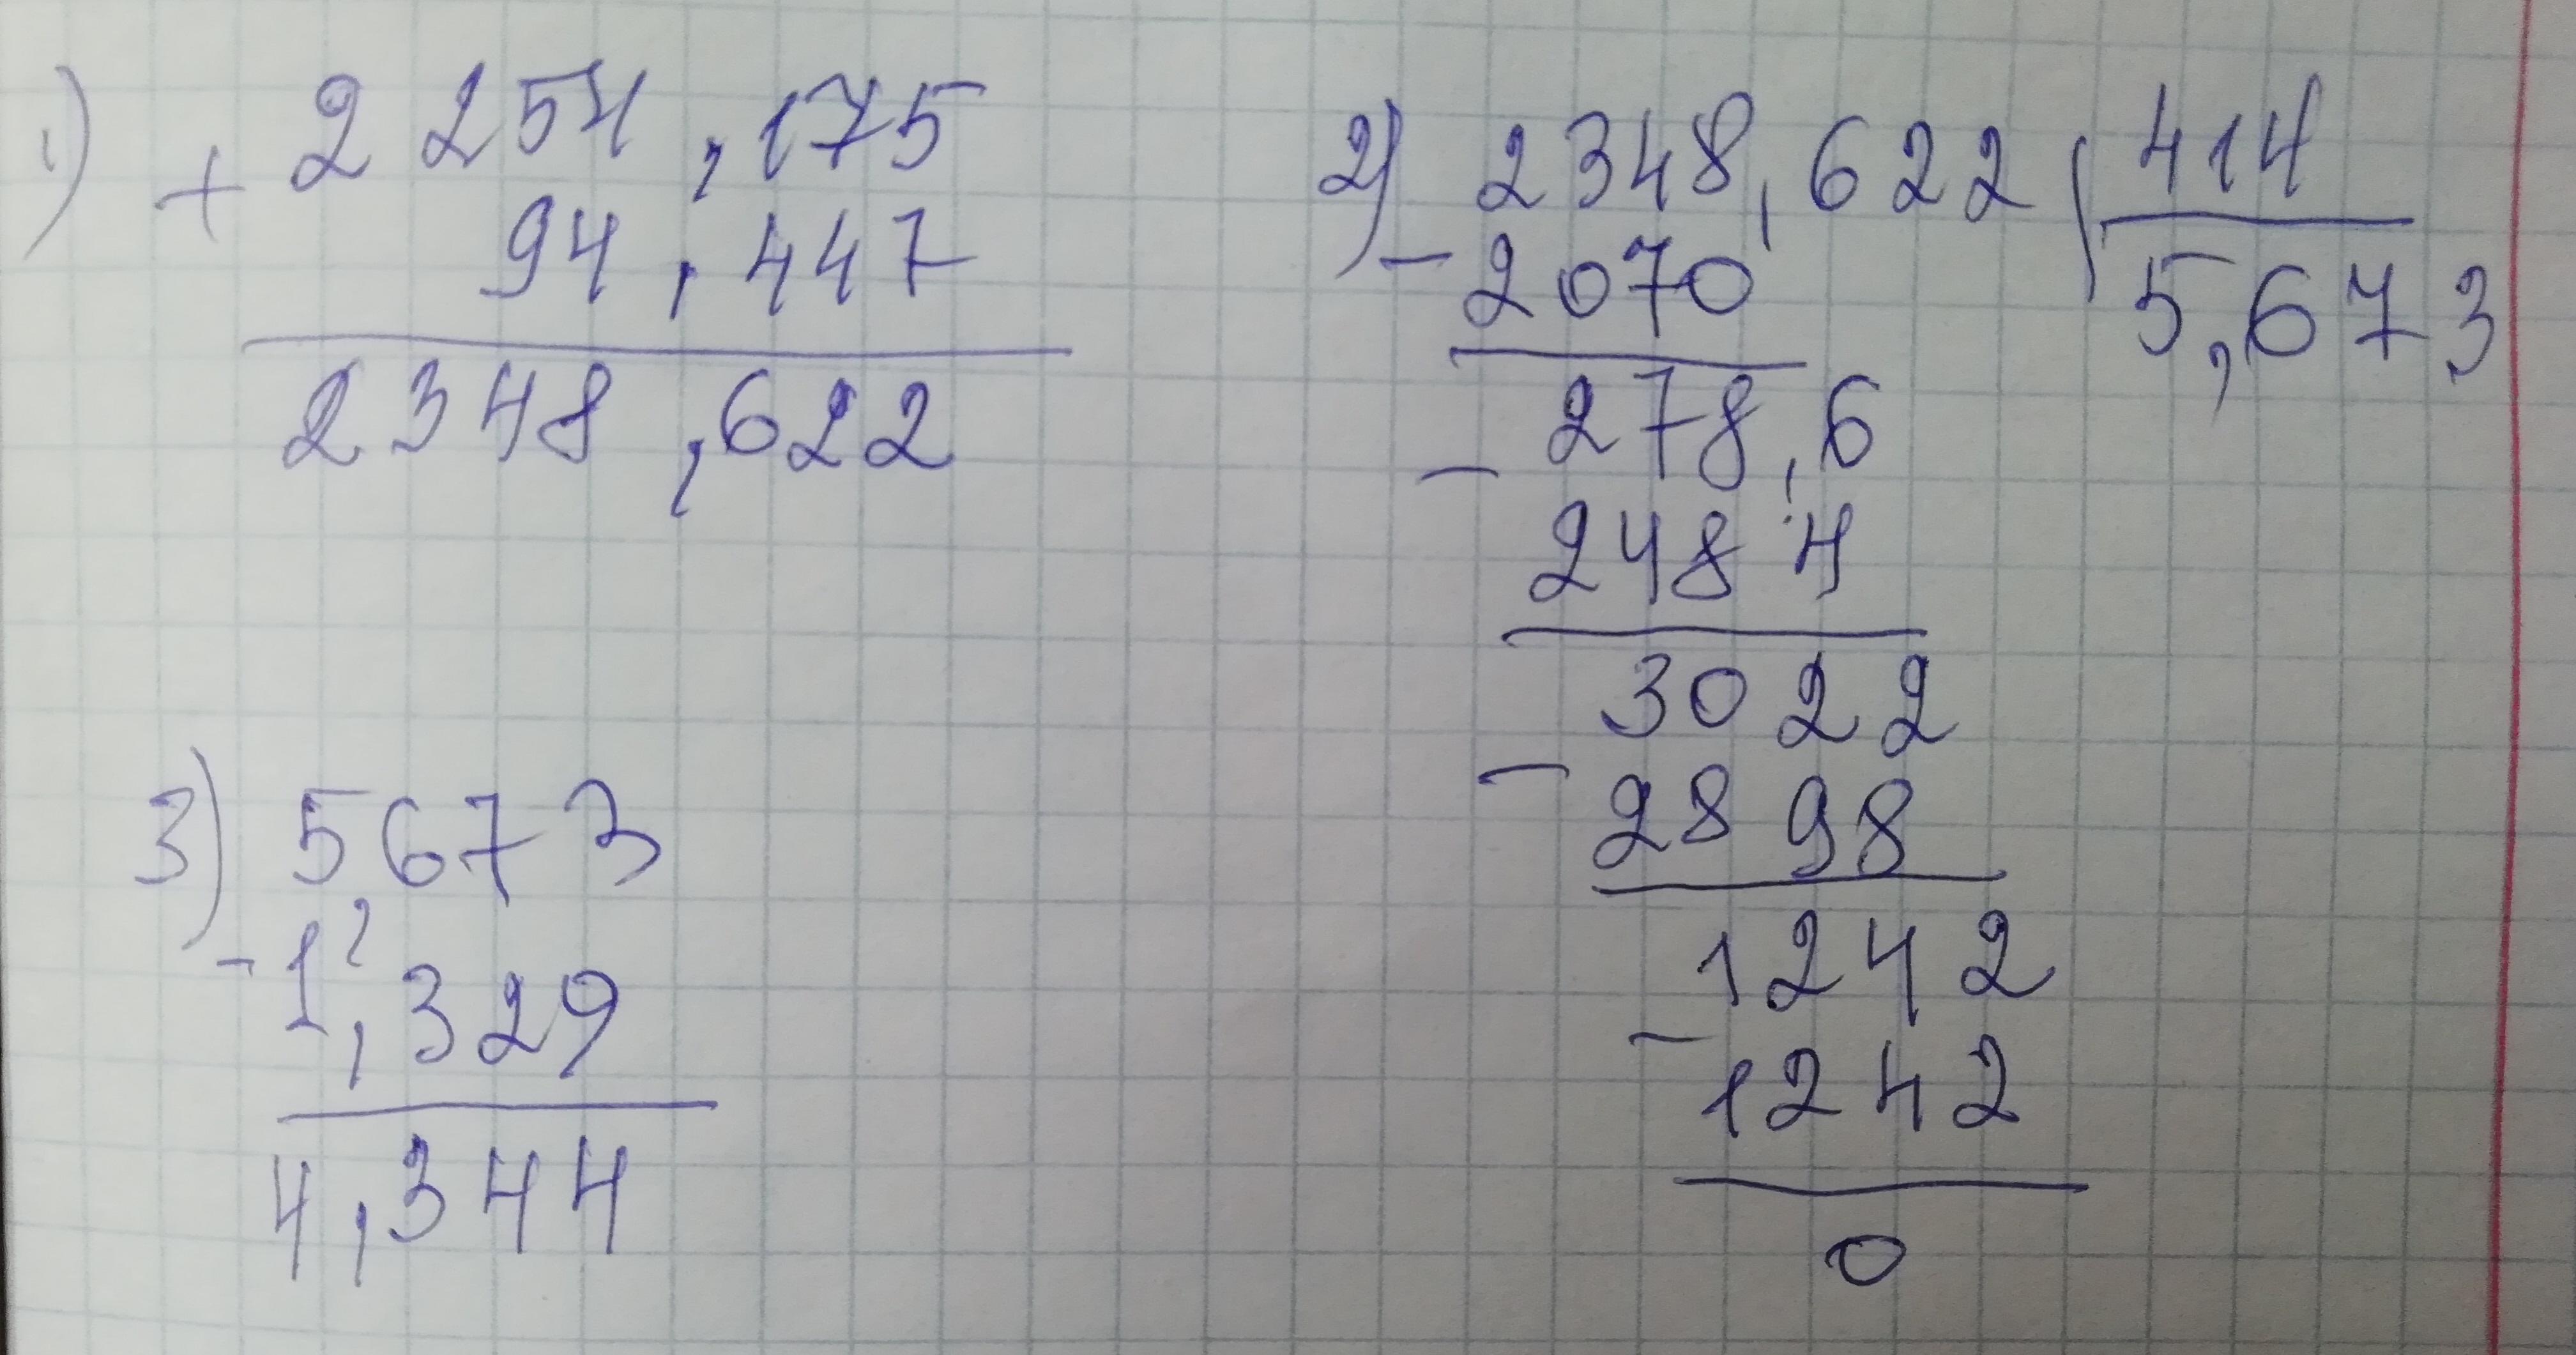 1) + 2254,175
94,447
2348,622
2) - 2348,622 | 414
2070 5,673
- 278,6
2484
3022
- 2898
1242
- 1242
0
3) 5,673
- 1,329
4,344